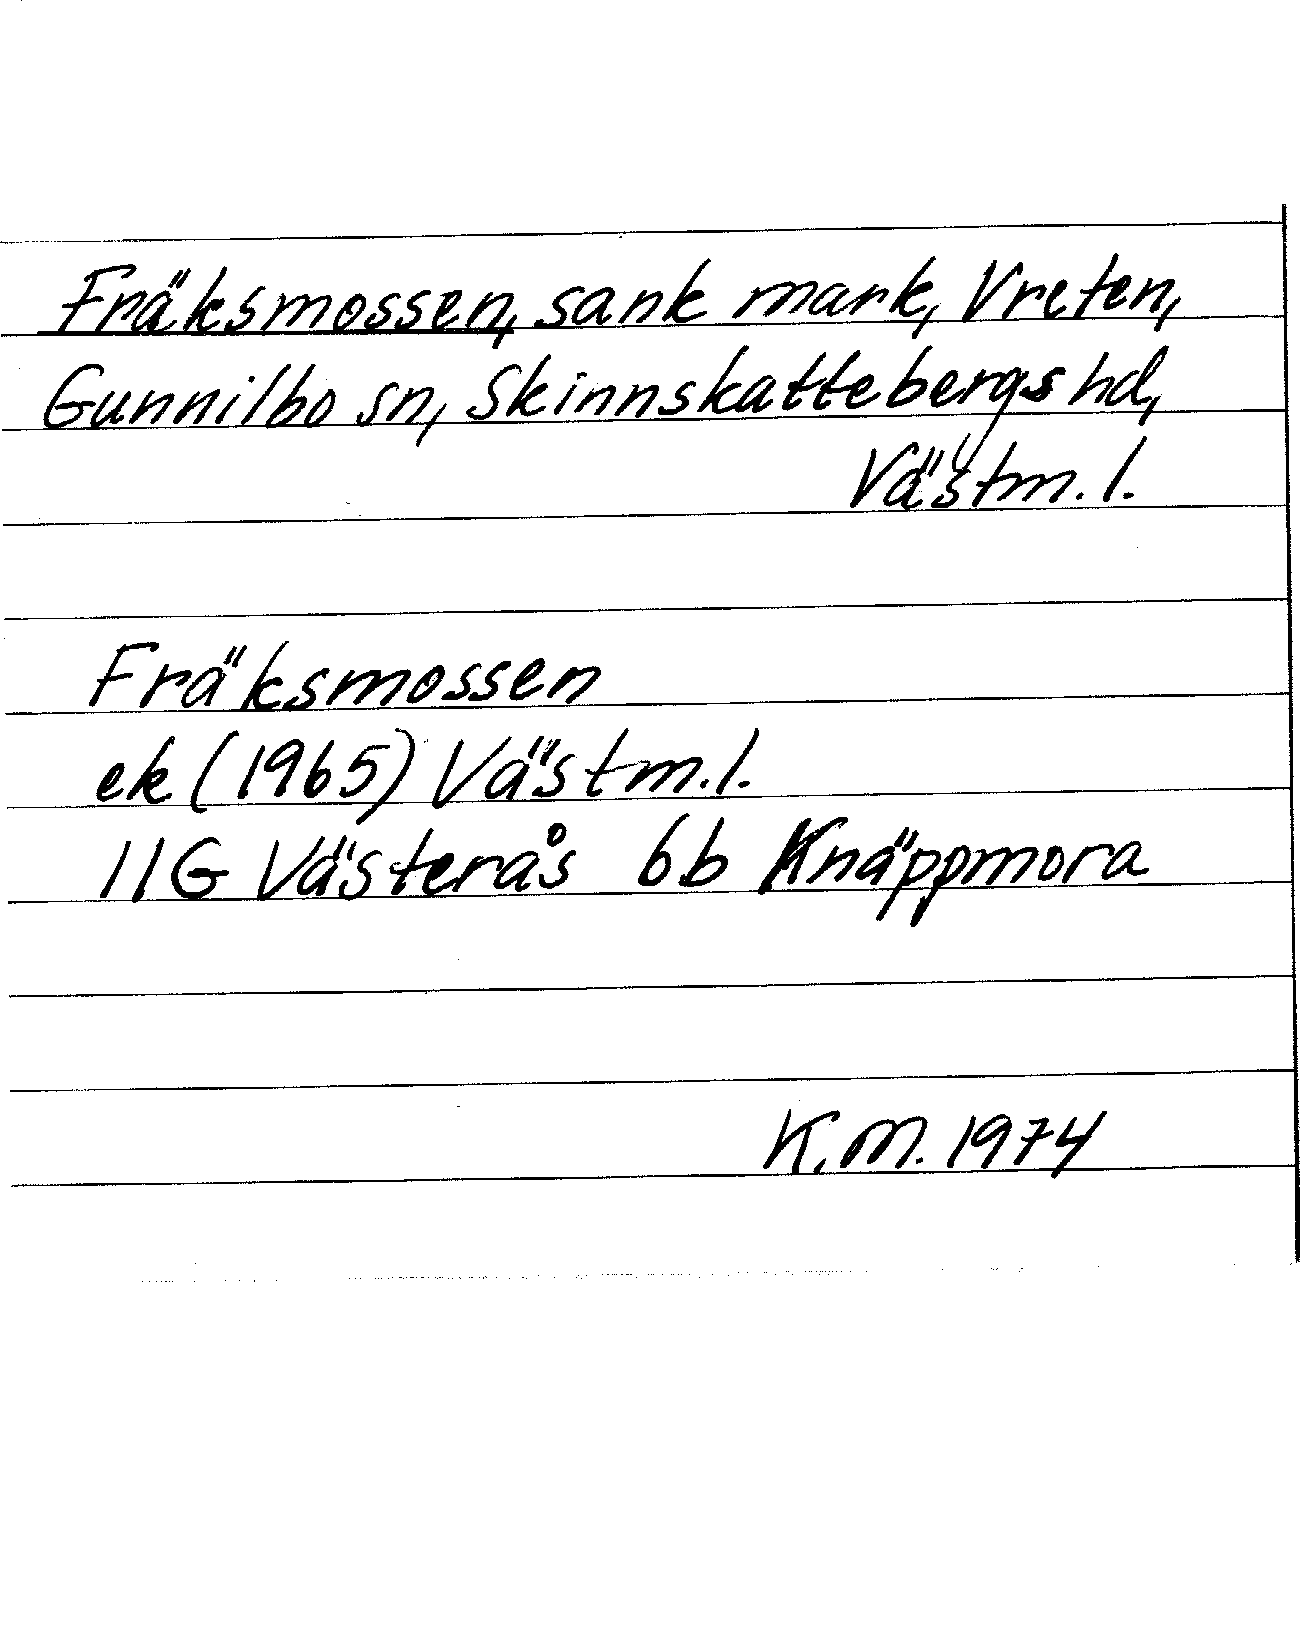 Fräksmossen, sank mark, Vreten,
Gunnilbo sn, Skinnskattebergs hd,
Västm. l.
Fräksmossen
ek (1965) Västm. l.
11G Västerås 6b Knäppmora
K. M. 1974